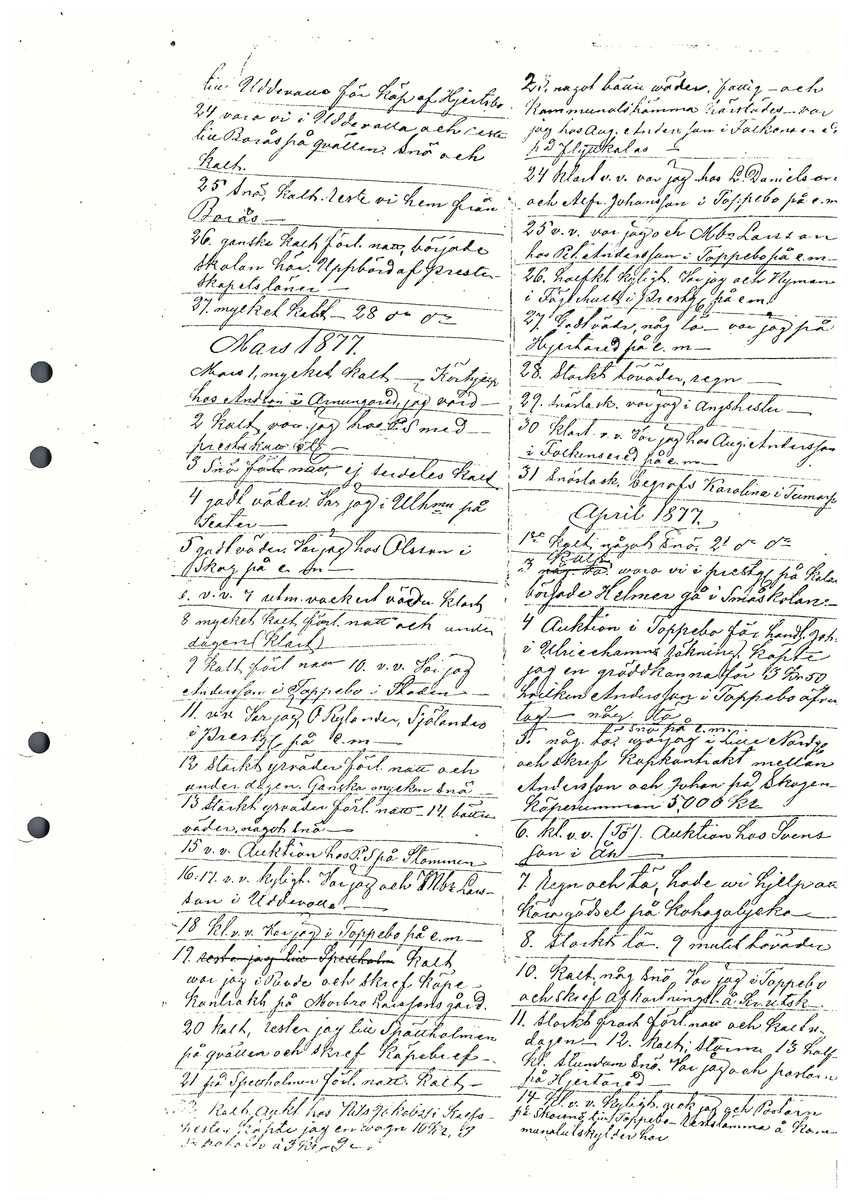 till Uddevalla för köp af Hjertsbo
24 vara vi i Uddevalla och reste
till Borås på qvällen. Snö och
kalt.
25 Snö, kalt. reste vi hem från
Borås —
26. ganska kalt förl. natt, började
skolan här. Uppbörd af prester-
skapets löner —
27. mycket kalt — 28 do do
Mars 1877.
Mars 1, mycket kalt — Körhjelp
hos Anders i Armungared, jag värd
2 kalt, var jag hos P.S med
3 Snö förl. natt, ej serdeles kalt
4 godt väder. Var jag i Ulhmn på
Teater —
5 godt väder. Var jag hos Olsson i
Skog på e. m —
6. v. v. 7 utm. vackert väder klart
8 mycket kalt förl. natt och under
dagen (klart)
9 kalt förl natt 10. v. v. Var jag
Andersson i Toppebo i Staden —
11. v.v Var jag, O Rylander, Sjölander
i Prestg. på e. m —
12 Starkt yrväder förl. natt och
under dagen. Ganska mycken snö —
13 Starkt yrväder förl. natt — 14. bättre
väder, något snö —
15 v. v. Auktion hos P.S på Stommen
16-17. v. v. kyligt. Var jag och Mbr Lars-
son i Uddevalla —
18 kl. v. v. Var jag i Toppebo på e. m —
19. reste jag till Spettholm kalt
war jag i och skref köpe-
kontrakt på Morbro Larssons gård.
20 kalt, rester jag till Spettholmen
på qvällen och skref köpebref —
21 på Spettholmen förl. natt. kalt —
kalt, aukt hos Nils Jakobss i
köpte jag en vagn 10 Kr,
à 3 Kr
23. något bättre wäder. fattig- och
Kommunalstämma — var
jag hos Aug. Andersson i Falkensered
på Flyttkalas —
24 klart v. v. var jag hos L. Danielsson
och Alfr. Johansson i Toppebo på e. m
25 v. v. var jag och Mbr Larsson
hos Pet. Andersson i Toppebo på e. m —
26. halfkl. kyligt. Var jag och Nyman
i Fägelhult i Prestg. på e m.
27. Godt vädr, någ tö — var jag på
Hjertared på e. m —
28. Starkt töväder, regn —
29. Snöslask. var jag i Ängshester —
30 klart v. v. Var jag hos Aug. Andersson
i Falkensered på e. m —
31 Snöslask, begrofs Karolina i
April 1877.
1ste kalt, något snö. 2 do do
kalt
3 någ tö. wara vi i prestg. på kalas
började Helmer gå i Småskolan —
4 Auktion i Toppebo för handl. Joh.
i Ulricehamns räkning, köpte
jag en gräddkanna för 3 Kr 50
hvilken Andersson i Toppebo öfver
tog — någ tö
snö på e. m.
5. någ tö, war jag i Lille
och skref köpkontrakt mellan
Andersson och Johan på Skogen
köpesumman 5,000 kr
6. kl. v. v. (Tö). Auktion hos Svens
son i Ån —
7. Regn och tö, hade wi hjelp att
köra gödsel på Kohagalycka —
8. Starkt tö. 9 mulet töväder
10. Kalt, någ Snö, Var jag i Toppebo
och skref afkortningsl. å Kr.utsk.
11. Starkt frost förl. natt och kalt u.
dagen — 12. kalt, storm 13 half
kl. stundom Snö. Var jag och pastorn
på Hjertared —
14 kl. v. v. kyligt. gick jag och Pastorn
på till Toppebo — å Kom-
munalutskylder har